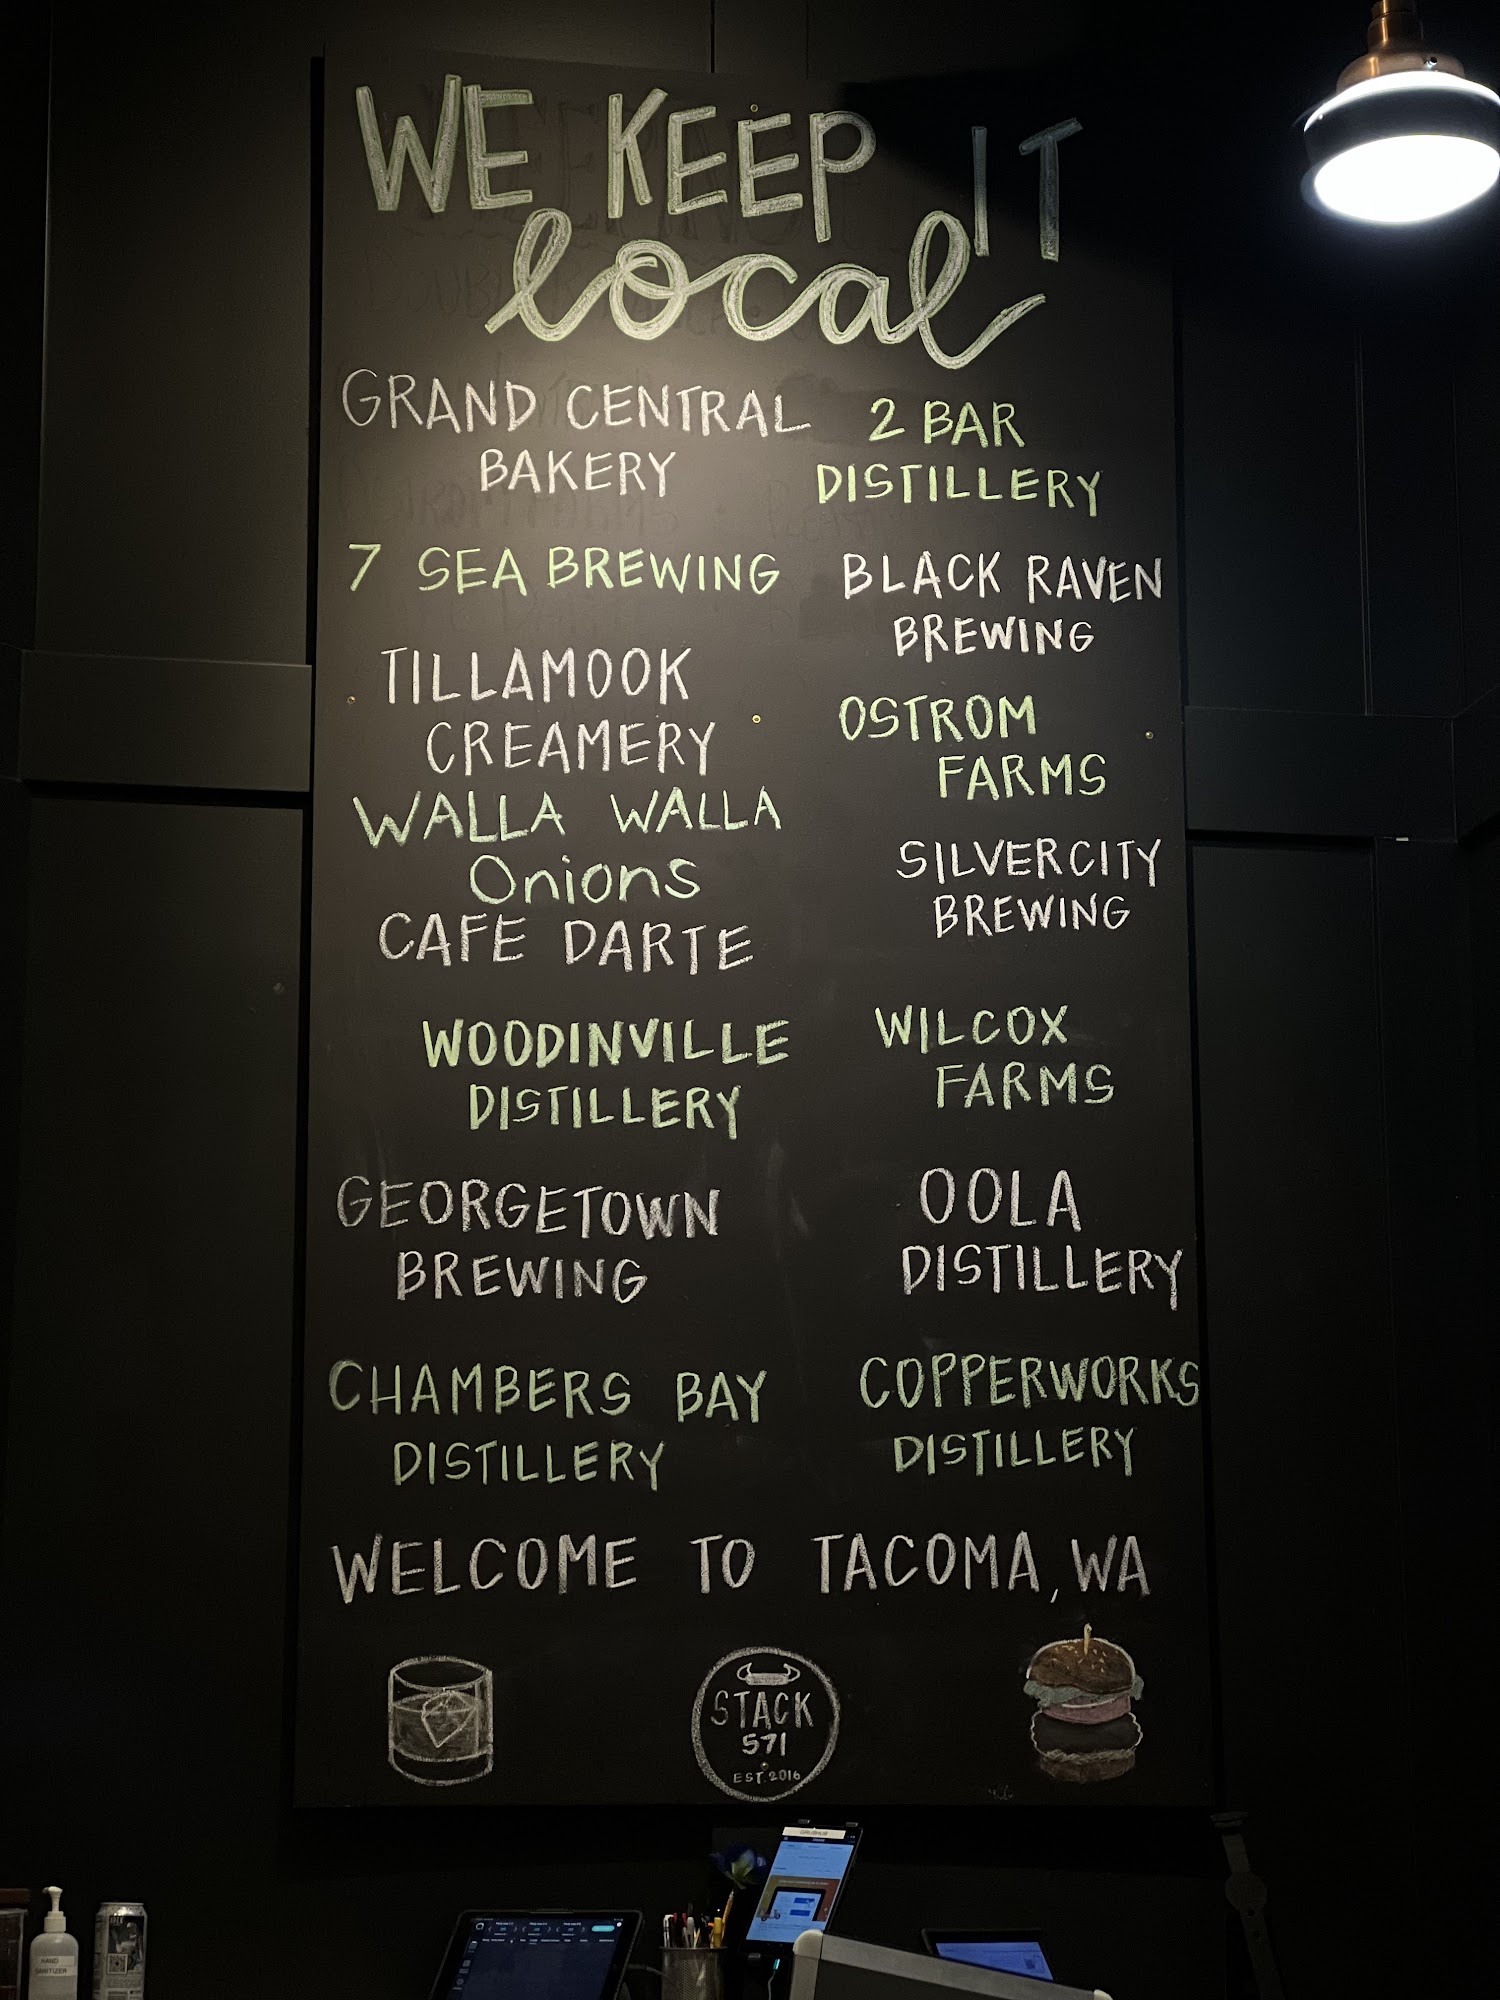 WE KEEP IT
local
GRAND CENTRAL
BAKERY
7 SEA BREWING
TILLAMOOK
CREAMERY
WALLA WALLA
Onions
CAFE DARTE
WOODINVILLE
DISTILLERY
GEORGETOWN
BREWING
CHAMBERS BAY
DISTILLERY
2 BAR
DISTILLERY
BLACK RAVEN
BREWING
OSTROM
FARMS
SILVERCITY
BREWING
WILCOX
FARMS
OOLA
DISTILLERY
COPPERWORKS
DISTILLERY
WELCOME TO TACOMA, WA
STACK
571
EST. 2016
HAND
SANITIZER